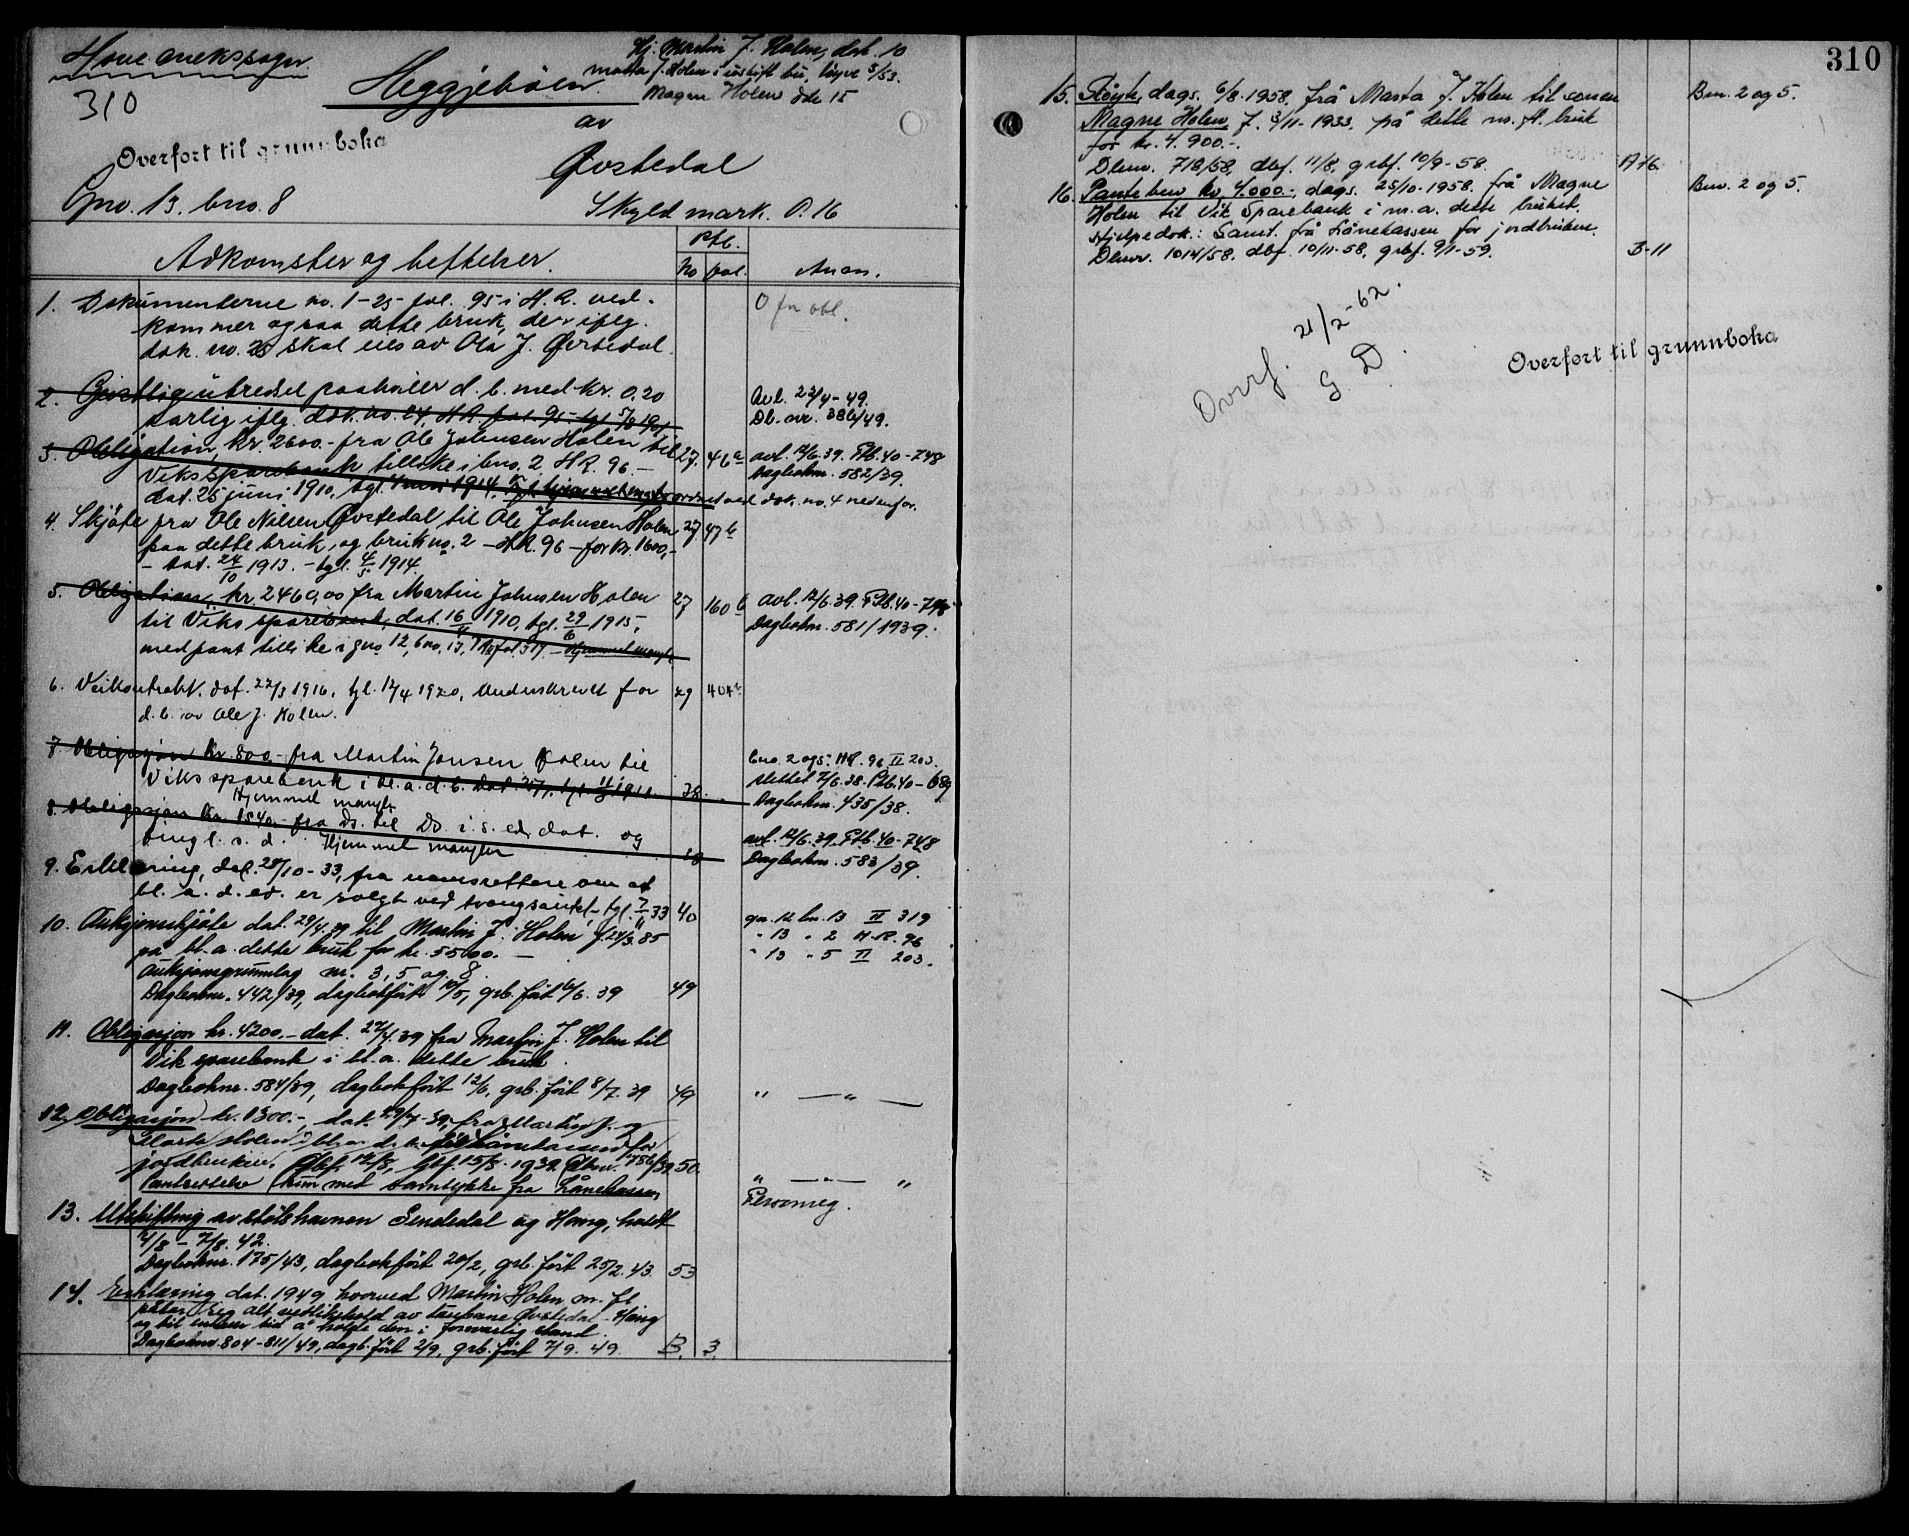 Hove anekssogn.
310
Hj. Martin J. Holen, dok. 10
Marta J. Holen i uskift bu, løyve 5/53.
Magne Holen dok 15
Heggjebøen
av
Overført til grunnboka
Øvstedal
Gno. 13. bno. 8
Skyld mark. 0.16
Adkomster og heftelser.
Ptb.
No fol.
Anm.
1. Dokumenterne no. 1-25 fol. 95 i H.R. ved-
kommer ogsaa dette bruk, der iflg.
dok. no. 25 skal eies av Ola J. Øvstedal.
O fr obl.
2. Geistlig utredsel paahviler d. b. med kr. 0.20
aarlig iflg. dok. no. 24, H.R. fol. 95
Avl. 22/4 - 49.
Db. nr. 386/49.
3. Obligation, kr. 2600.- fra Ole Johnsen Holen til
Viks sparebank tillike i bno. 2 H.R. 96 -
dat. 25 juni 1910, tgl. 4 mai 1914. ved dok. no. 4 nedenfor.
27. 46a
avl. 12/6. 39. Ptb. 40 - 748
Dagboknr. 582/39.
4. Skjøte fra Ole Nilsen Øvstedal til Ole Johnsen Holen
paa dette bruk, og bruk no. 2 - H.R. 96 - for kr. 1600,-
- Dat. 24/10 1913. - tgl. 4/5 1914.
27 47b
5. Obligation, kr. 2460,00 fra Martin Johnsen Holen
til Viks sparebank, dat. 16/ 1910, tgl. 29/6 1915,
med pant tillike i gno 12, bno. 13, fol. 319. - Hjemmel mangler
27 160b
avl. 12/6. 39. Ptb. 40 - 748
Dagboknr. 581/1939.
6. Veikontrakt. dat. 22/3 1916, tgl. 12/4 1920, underskrevet for
d. b. av Ole J. Holen.
29 404
7. Obligasjon kr. 800.- fra Martin Jonsen Holen til
Viks sparebank i bl. a. d. b.
Hjemmel mangler
38.
bno. 2 og 5. HR. 96 II 203.
slettet 7/6. 38. Ptb. 40 - 689
Dagboknr. 435/38.
8. Obligasjon kr. 1540.- fra Ds. til Do. i s. ed, dat. og
tingl. s. d. Hjemmel mangler
38
avl. 12/6. 39. Ptb. 40 - 748
Dagboknr. 583/39.
9. Erklæring, dat. 28/10 - 33, fra namsrettene om at
bl. a. d. ed. er solgt ved tvangsauksj. tgl. 7/11 33
40
10. Auksjonsskjøte dat. 29/4. 39 til Martin J. Holen f. 24/3. 85
på bl. a. dette bruk for kr. 5500. -
Auksjonsgrunnlag nr. 3, 5 og 8.
Dagboknr. 442/39, dagbokført 10/5, grb. ført 16/6. 39
49
gn. 12 bn. 13 II 319
" 13 " 2 H.R. 96
" 13 " 5 II 203.
11. Obligasjon kr. 4200.- dat. 29/4. 39 fra Martin J. Holen til
Vik sparebank i bl. a. dette bruk.
Dagboknr. 584/39, dagbokført 12/6, grb. ført 8/7. 39
49
" — " —
12. Obligasjon kr. 1300.-, dat. 29/4 - 39, fra Martin J. og
Marta Holen i bl. a. d. b. til Lånekassen for
jordbrukere. Dbf. 12/8, Gbf. 15/8. 1939. Dbnr. 786/39
50.
Pantsettelse kun med samtykke fra Lånekassen
" — " — "
13. Utskiftning av stølshavnen Sendedal og Haug, holdt
4/8 - 7/8. 42.
Dagboknr. 175/43, dagbokført 20/2, grb. ført 25/2. 43.
53
Personreg.
14. Erklæring dat. 1949 hvorved Martin Holen m. fl.
påtar seg alt vedlikehold av taubane Øvstedal - Haug
og til enhver tid å holde den i forsvarlig stand.
Dagboknr 804 - 811/49, dagb. ført 2/9, grb. ført 7/9. 49.
B. 3.
310
15. Skøyte, dags. 6/8. 1958, frå Marta J. Holen til sonen
Magne Holen, f. 3/11 - 1933, på dette m. fl. bruk
for kr. 4.900.-.
Dbnr. 718/58, dbf. 11/8, grbf. 10/9 - 58.
A 16.
Bnr. 2 og 5.
16. Pantebrev kr. 4.000.-, dags. 25/10 - 1958. frå Magne
Holen til Vik Sparebank i m. a. dette bruket.
Hjelpedok.: Samt. frå Lånekassen for jordbrukere.
Dbnr. 1014/58, dbf. 10/11 - 58, grbf. 9/1 - 59.
B - 11
Bnr. 2 og 5.
Overf. 21/2 - 62.
G. D.
Overført til grunnboka